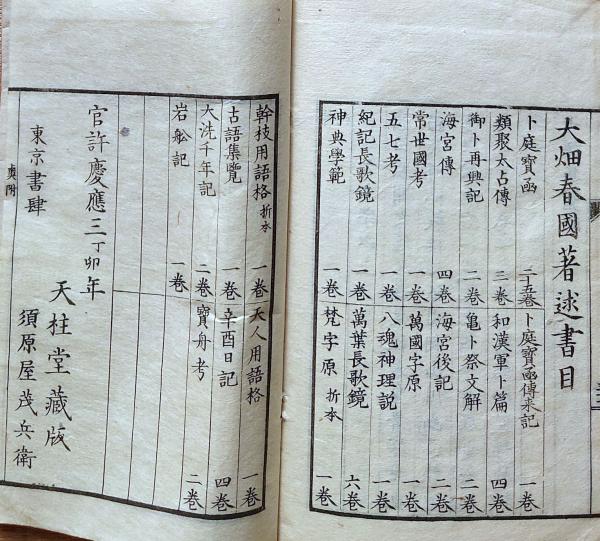 大畑春國著述書目
卜庭寶凾 二十五巻 卜庭寶凾傳来記 一巻
類聚太占傳 三巻 和漢軍卜篇 四巻
御卜再興記 二巻 亀卜祭文解 二巻
海宮傳 四巻 海宮後記 二巻
常世國考 一巻 萬國字原 一巻
五七考 一巻 八魂神理説 一巻
紀記長歌鏡 一巻 萬葉長歌鏡 六巻
神典學範 一巻 梵字原 折本 一巻
幹枝用語格 折本 一巻 天人用語格 一巻
古語集覽 一巻 辛酉日記 四巻
大洗千年記 二巻 寶舟考 二巻
岩舩記 一巻
官許慶應三丁卯年
天柱堂藏版
東京書肆 須原屋茂兵衛
奥附